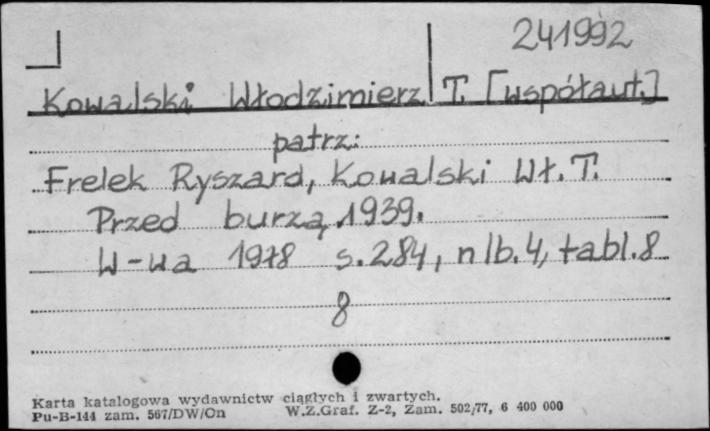 241992
Kowalski Włodzimierz T. [współaut.]
patrz:
Frelek Ryszard, Kowalski Wł. T.
Przed burzą 1939.
W-wa 1978 s. 284, nlb. 4, tabl. 8
8
Karta katalogowa wydawnictw ciągłych i zwartych.
Pu-B-144 zam. 567/DW/On W.Z.Graf. Z-2, Zam. 502/77, 6 400 000